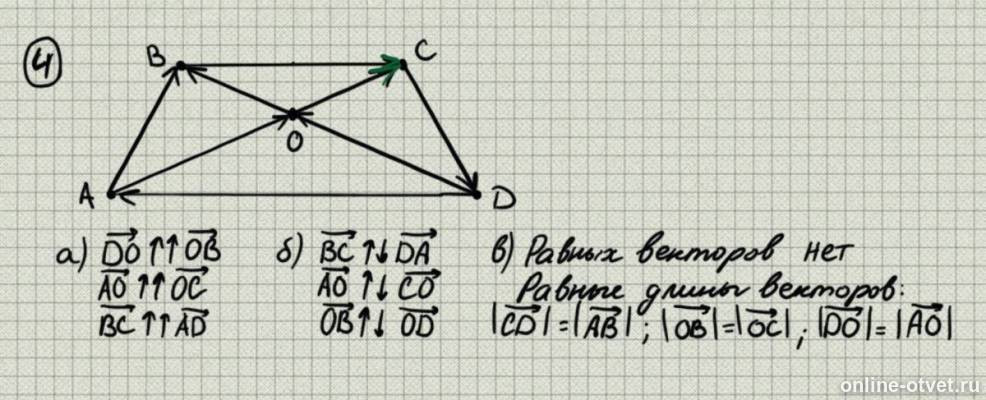 4
B
C
O
A
D
а) DO ↑↑ OB
AO ↑↑ OC
BC ↑↑ AD
б) BC ↑↓ DA
AO ↑↓ CO
OB ↑↓ OD
в) Равных векторов нет
Равные длины векторов:
|CD| = |AB| ; |OB| = |OC| ; |DO| = |AO|
online-otvet.ru